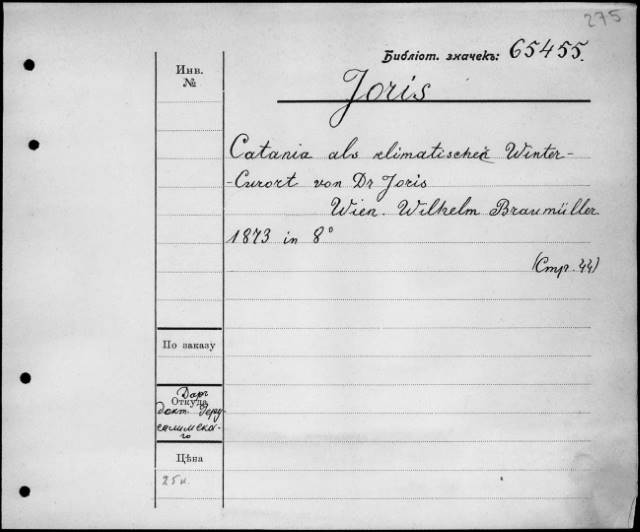 275
Библіот. значекъ: 65455.
Инв.
№
Joris
Catania als klimatischer Winter-
-Curort von Dr Joris
Wien. Wilhelm Braumüller
1873 in 8°
(Стр. 44)
По заказу
Откуда
Даръ
докт. Іеру-
салимска-
го
Цѣна
25 к.